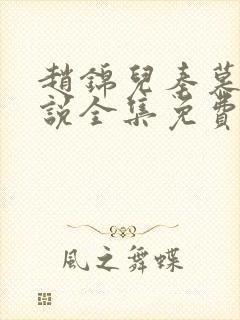 趙錦兒秦慕
說全集免費
風之舞蝶